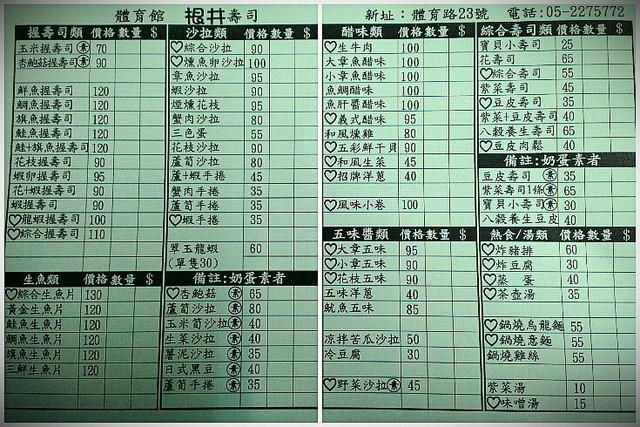 體育館 根井壽司
握壽司類 價格 數量 $
玉米握壽司 素 70
杏鮑菇握壽司 素 90
鮮魚握壽司 120
鯛魚握壽司 120
旗魚握壽司 120
鮭魚握壽司 120
鮭+旗魚握壽司 120
花枝握壽司 90
蝦卵握壽司 95
花+蝦握壽司 90
蝦握壽司 90
♡龍蝦握壽司 100
♡綜合握壽司 110
生魚類 價格 數量 $
♡綜合生魚片 130
黃金生魚片 120
鮭魚生魚片 120
鯛魚生魚片 120
旗魚生魚片 120
三鮮生魚片 120
沙拉類 價格 數量 $
♡綜合沙拉 90
♡燻魚卵沙拉 100
章魚沙拉 95
蝦沙拉 90
煙燻花枝 95
蟹肉沙拉 80
三色蛋 55
花枝沙拉 90
蘆筍沙拉 80
蘆+蝦手捲 45
蟹肉手捲 35
蘆筍手捲 35
♡蝦手捲 35
單玉龍蝦 60
(單隻30)
備註:奶蛋素者
♡杏鮑菇 素 65
蘆筍沙拉 素 80
玉米筍沙拉 素 40
生菜沙拉 素 40
薯泥沙拉 素 35
日式黑豆 素 40
蘆筍手捲 素 35
新址:體育路23號 電話:05-2275772
醋味類 價格 數量 $
♡生牛肉 100
大章魚醋味 100
小章魚醋味 100
魚鯛醋味 100
魚肝醬醋味 100
♡義式醋味 95
和風燻雞 80
♡五彩鮮干貝 90
♡和風生菜 45
♡招牌洋蔥 40
♡風味小卷 100
五味醬類 價格 數量 $
♡大章五味 95
♡小章五味 90
♡花枝五味 90
五味洋蔥 40
魷魚五味 85
涼拌苦瓜沙拉 50
冷豆腐 30
♡野菜沙拉 素 45
綜合壽司類 價格 數量 $
寶貝小壽司 25
花壽司 65
♡綜合壽司 55
紫菜壽司 45
♡豆皮壽司 35
紫菜+豆皮壽司 40
八穀養生壽司 65
♡豆皮肉鬆 40
備註:奶蛋素者
豆皮壽司 素 35
紫菜壽司1條 素 65
寶貝小壽司 素 30
八穀養生豆皮 40
熱食/湯類 價格 數量 $
♡炸豬排 60
♡炸豆腐 30
♡蒸 蛋 40
♡茶壺湯 35
♡鍋燒烏龍麵 55
♡鍋燒意麵 55
鍋燒雞絲 55
紫菜湯 10
♡味噌湯 15